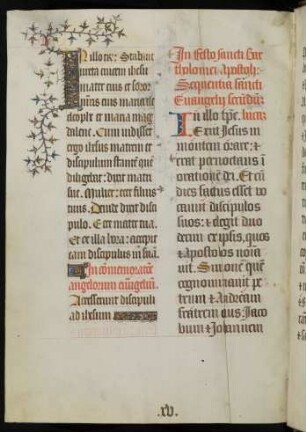 In illo tꝑe: Stabant
iuxta crucem ihesu
mater eius et soror
matris eius maria cle
ophe et maria mag
dalene. Cum vidisset
ergo ihesus matrem et
discipulum stantē quē
diligebat: dixit matri
sue. Mulier: ecce filius
tuus. Deinde dixit disci
pulo. Ecce mater tua.
Et ex illa hora: accepit
eam discipulus in suā.
In comemoratōe
angelorum euangeliū.
Accesserunt discipuli
ad ihesum
In festo sancti bar
tholomei apostoli:
Sequentia sancti
Euangelij secūdū:
lucā
In illo tpe.
Exiit Jesus in
montem orare: et
erat pernoctans ī
oratione dei. Et cū
dies factus esset vo
cauit discipulos
suos: et elegit duo
decim ex ipsis, quos
et apostolos nomī
uit. Simonē quē
cognominauit pe
trum et Andream
fratrem eius Jaco
bum et Johannem
.xv.